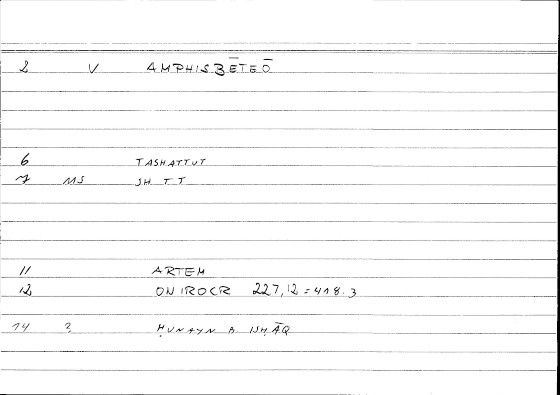 2 V AMPHISBĒTEŌ
6 TASHATTUT
7 MS SH T T
11 ARTEM
12 ONIROCR 227,12=418.3
14 2 ḤUNAYN B. ISḤĀQ